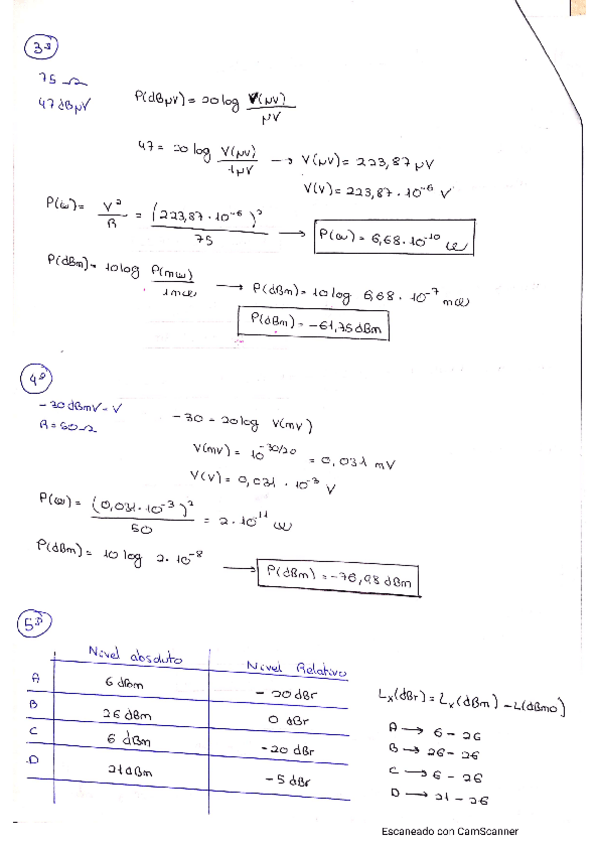 3º
75 Ω
47 dBµV
P(dBµV) = 20 log V(µV) / µV
47 = 20 log V(µV) / 1µV → V(µV) = 223,87 µV
V(V) = 223,87 · 10⁻⁶ V
P(ω) = V² / R = (223,87 · 10⁻⁶)² / 75 → P(ω) = 6,68 · 10⁻¹⁰ ω
P(dBm) = 10 log P(mω) / 1mω → P(dBm) = 10 log 6,68 · 10⁻⁷ mω
P(dBm) = -61,75 dBm
4º
-30 dBmV - V
R = 50 Ω
-30 = 20 log V(mV)
V(mV) = 10^-30/20 = 0,031 mV
V(V) = 0,031 · 10⁻³ V
P(ω) = (0,031 · 10⁻³)² / 50 = 2 · 10⁻¹¹ ω
P(dBm) = 10 log 2 · 10⁻⁸ → P(dBm) = -76,98 dBm
5º
Nivel absoluto Nivel Relativo
A 6 dBm -20 dBr
B 26 dBm 0 dBr
C 6 dBm -20 dBr
D 21 dBm -5 dBr
Lx(dBr) = Lx(dBm) - L(dBm0)
A → 6 - 26
B → 26 - 26
C → 6 - 26
D → 21 - 26
Escaneado con CamScanner